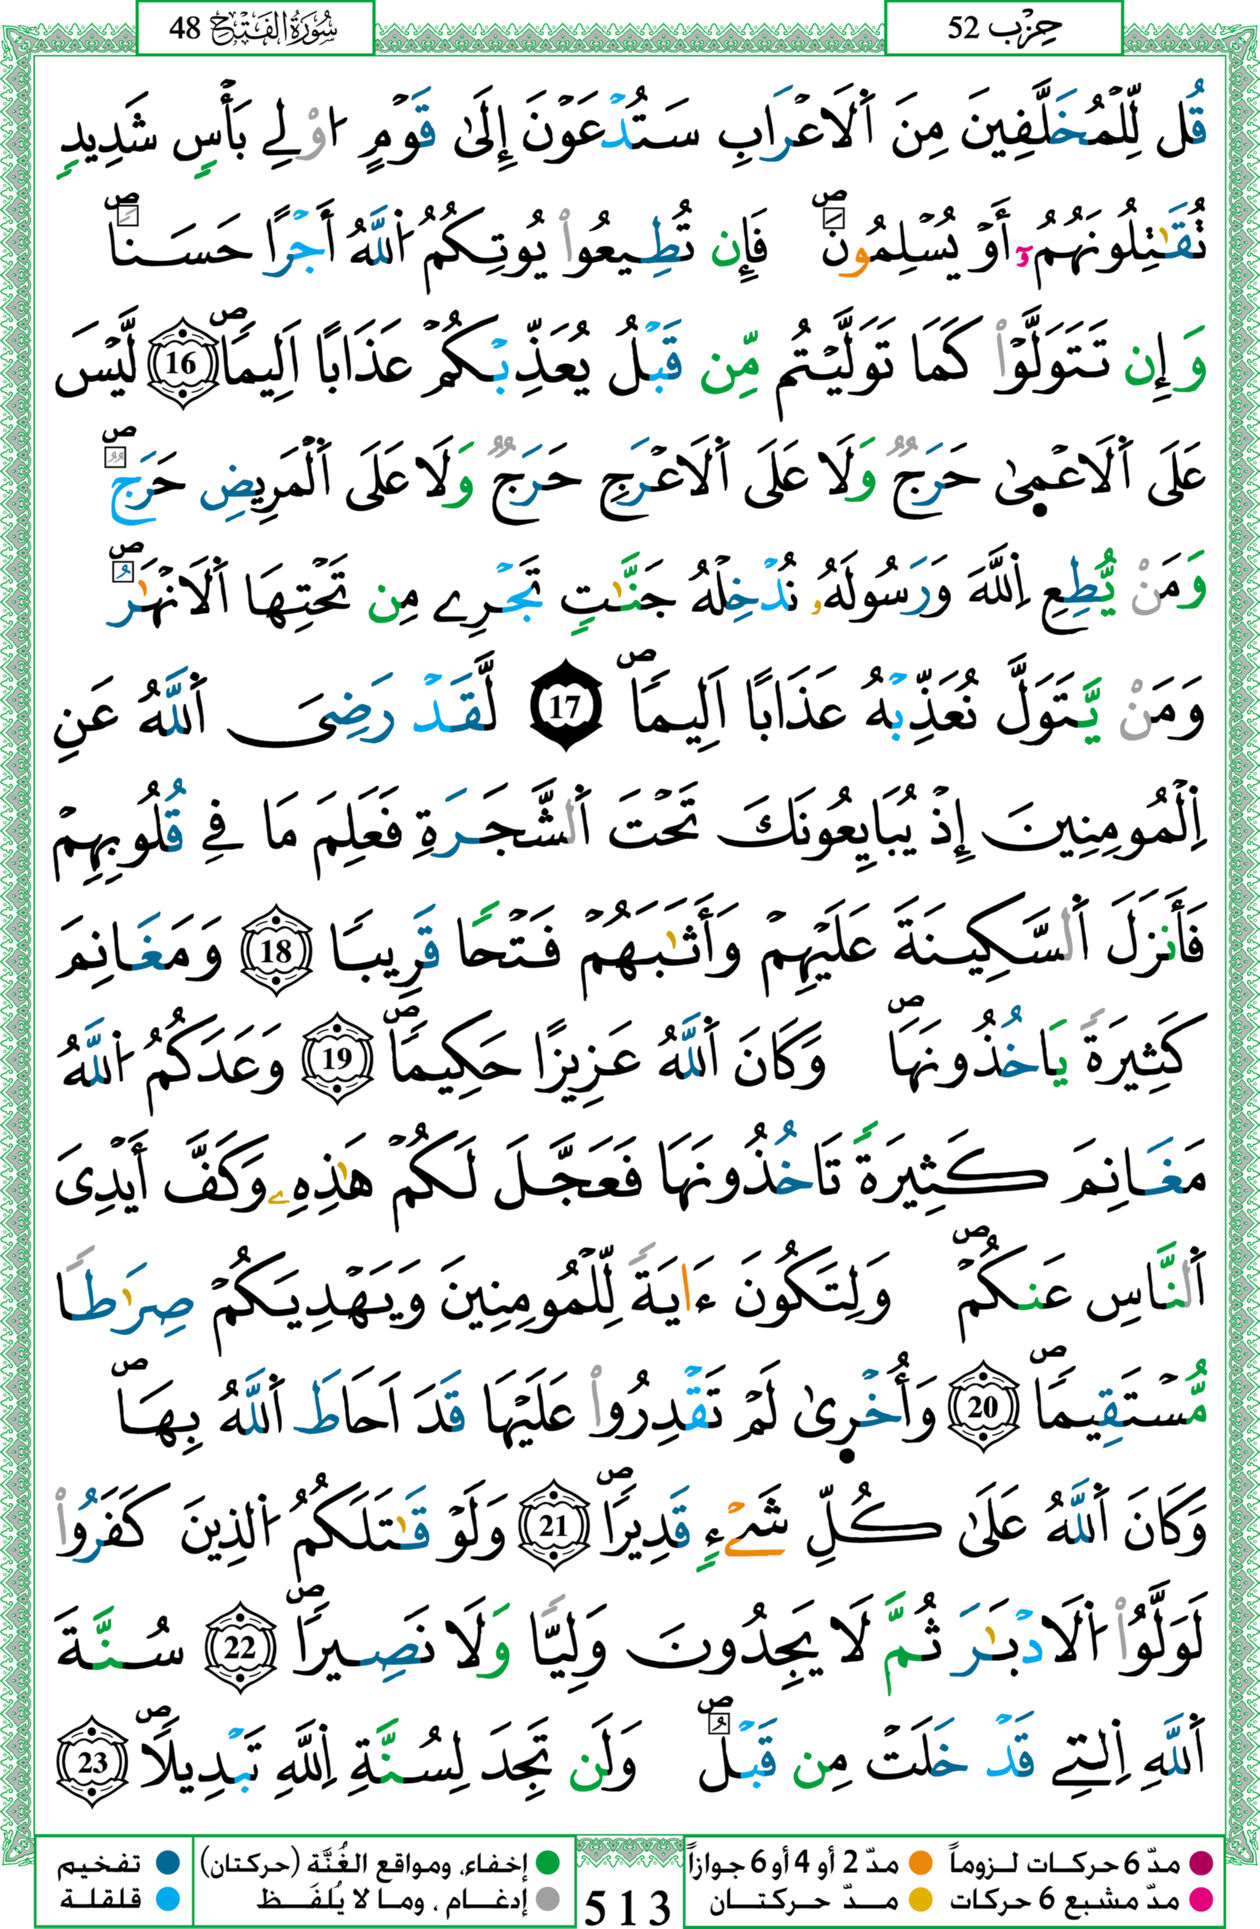 سُورَةُ الفَتْحِ 48
حِزْب 52
قُل لِّلْمُخَلَّفِينَ مِنَ ٱلَاعْرَابِ سَتُدْعَوْنَ إِلَىٰ قَوْمٍ ا۟وْلِے بَأْسٖ شَدِيدٖ
تُقَٰتِلُونَهُمُۥٓ أَوْ يُسْلِمُونَۖ فَإِن تُطِيعُوا۟ يُوتِكُمُ ا۬للَّهُ أَجْرًا حَسَنٗاۖ
وَإِن تَتَوَلَّوْا۟ كَمَا تَوَلَّيْتُم مِّن قَبْلُ يُعَذِّبْكُمْ عَذَابًا اَلِيمٗاۖ 16 لَّيْسَ
عَلَى ٱلَاعْمۭىٰ حَرَجٞ وَلَا عَلَى ٱلَاعْرَجِ حَرَجٞ وَلَا عَلَى ٱلْمَرِيضِ حَرَجٞۖ
وَمَنْ يُّطِعِ اِ۬للَّهَ وَرَسُولَهُۥ نُدْخِلْهُ جَنَّٰتٖ تَجْرِے مِن تَحْتِهَا ٱلَانْهَٰرُۖ
وَمَنْ يَّتَوَلَّ نُعَذِّبْهُ عَذَابًا اَلِيمٗاۖ 17 لَّقَدْ رَضِىَ ٱللَّهُ عَنِ
اِ۬لْمُومِنِينَ إِذْ يُبَايِعُونَكَ تَحْتَ ٱلشَّجَرَةِ فَعَلِمَ مَا فِے قُلُوبِهِمْ
فَأَنزَلَ ٱلسَّكِينَةَ عَلَيْهِمْ وَأَثَٰبَهُمْ فَتْحٗا قَرِيبٗا 18 وَمَغَانِمَ
كَثِيرَةٗ يَاخُذُونَهَاۖ وَكَانَ ٱللَّهُ عَزِيزًا حَكِيمٗاۖ 19 وَعَدَكُمُ ا۬للَّهُ
مَغَانِمَ كَثِيرَةٗ تَاخُذُونَهَا فَعَجَّلَ لَكُمْ هَٰذِهِۦ وَكَفَّ أَيْدِىَ
ٱلنَّاسِ عَنكُمْۖ وَلِتَكُونَ ءَايَةٗ لِّلْمُومِنِينَ وَيَهْدِيَكُمْ صِرَٰطٗا
مُّسْتَقِيمٗاۖ 20 وَأُخْرۭىٰ لَمْ تَقْدِرُوا۟ عَلَيْهَا قَدَ اَحَاطَ ٱللَّهُ بِهَاۖ
وَكَانَ ٱللَّهُ عَلَىٰ كُلِّ شَےْءٖ قَدِيرٗاۖ 21 وَلَوْ قَٰتَلَكُمُ ا۬لذِينَ كَفَرُوا۟
لَوَلَّوُا۟ ا۬لَادْبَٰرَ ثُمَّ لَا يَجِدُونَ وَلِيّٗا وَلَا نَصِيرٗاۖ 22 سُنَّةَ
ٱللَّهِ اِ۬لتِے قَدْ خَلَتْ مِن قَبْلُۖ وَلَن تَجِدَ لِسُنَّةِ اِ۬للَّهِ تَبْدِيلٗاۖ 23
مدّ 6 حركات لزوماً مدّ 2 أو 4 أو 6 جوازاً
مدّ مشبع 6 حركات مدّ حركتان
513
إخفاء، ومواقع الغُنَّة (حركتان) تفخيم
إدغام ، وما لا يُلفَظ قلقلة